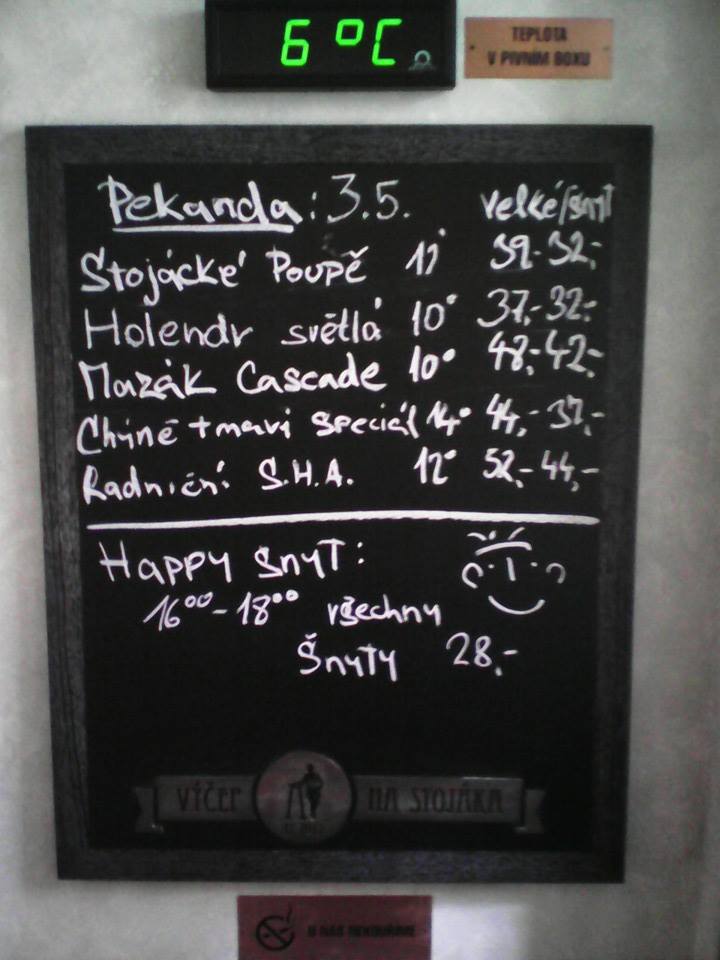 6 °C
TEPLOTA
V PIVNÍM BOXU
Pekanda: 3.5. velké/šnyt
Stojácké Poupě 11° 39.-32,-
Holendr světlá 10° 37,-32,-
Mazák Cascade 10° 48,-42,-
Chýně tmavý speciál 14° 44,-37,-
Radniční S.H.A. 12° 52,-44,-
Happy šnyt:
16⁰⁰-18⁰⁰ všechny
Šnyty 28,-
VÝČEP NA STOJÁKA
U NÁS NEKOUŘÍME